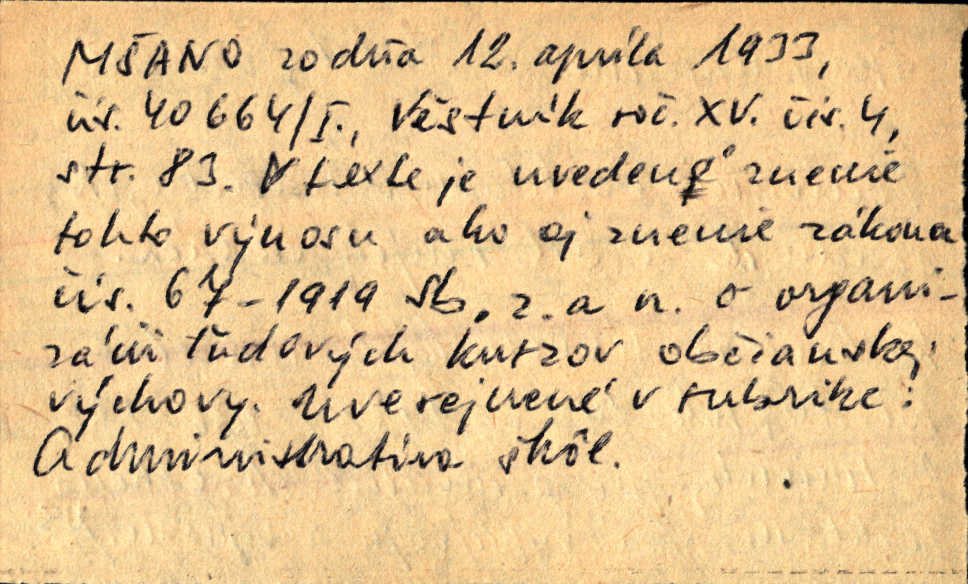 MŠANO zo dňa 12. apríla 1933,
čís. 40 664/I., Věstník roč. XV. čís. 4,
str. 83. V texte je uvedené znenie
tohto výnosu ako aj znenie zákona
čís. 67-1919 Sb. z. a n. o organi-
zácii ľudových kurzov občianskej
výchovy. Uverejnené v rubrike:
Administratíva škôl.